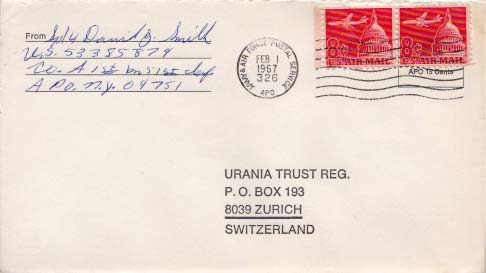 From Sp/4 David J. Smith
U.S. 53385879
Co. A 1st bn 51st Inf
APO. N.Y. 09751
ARMY & AIR FORCE POSTAL SERVICE
FEB 1
1967
326
APO
8¢
U.S. AIR MAIL
8¢
U.S. AIR MAIL
APO 15 Cents
URANIA TRUST REG.
P. O. BOX 193
8039 ZURICH
SWITZERLAND